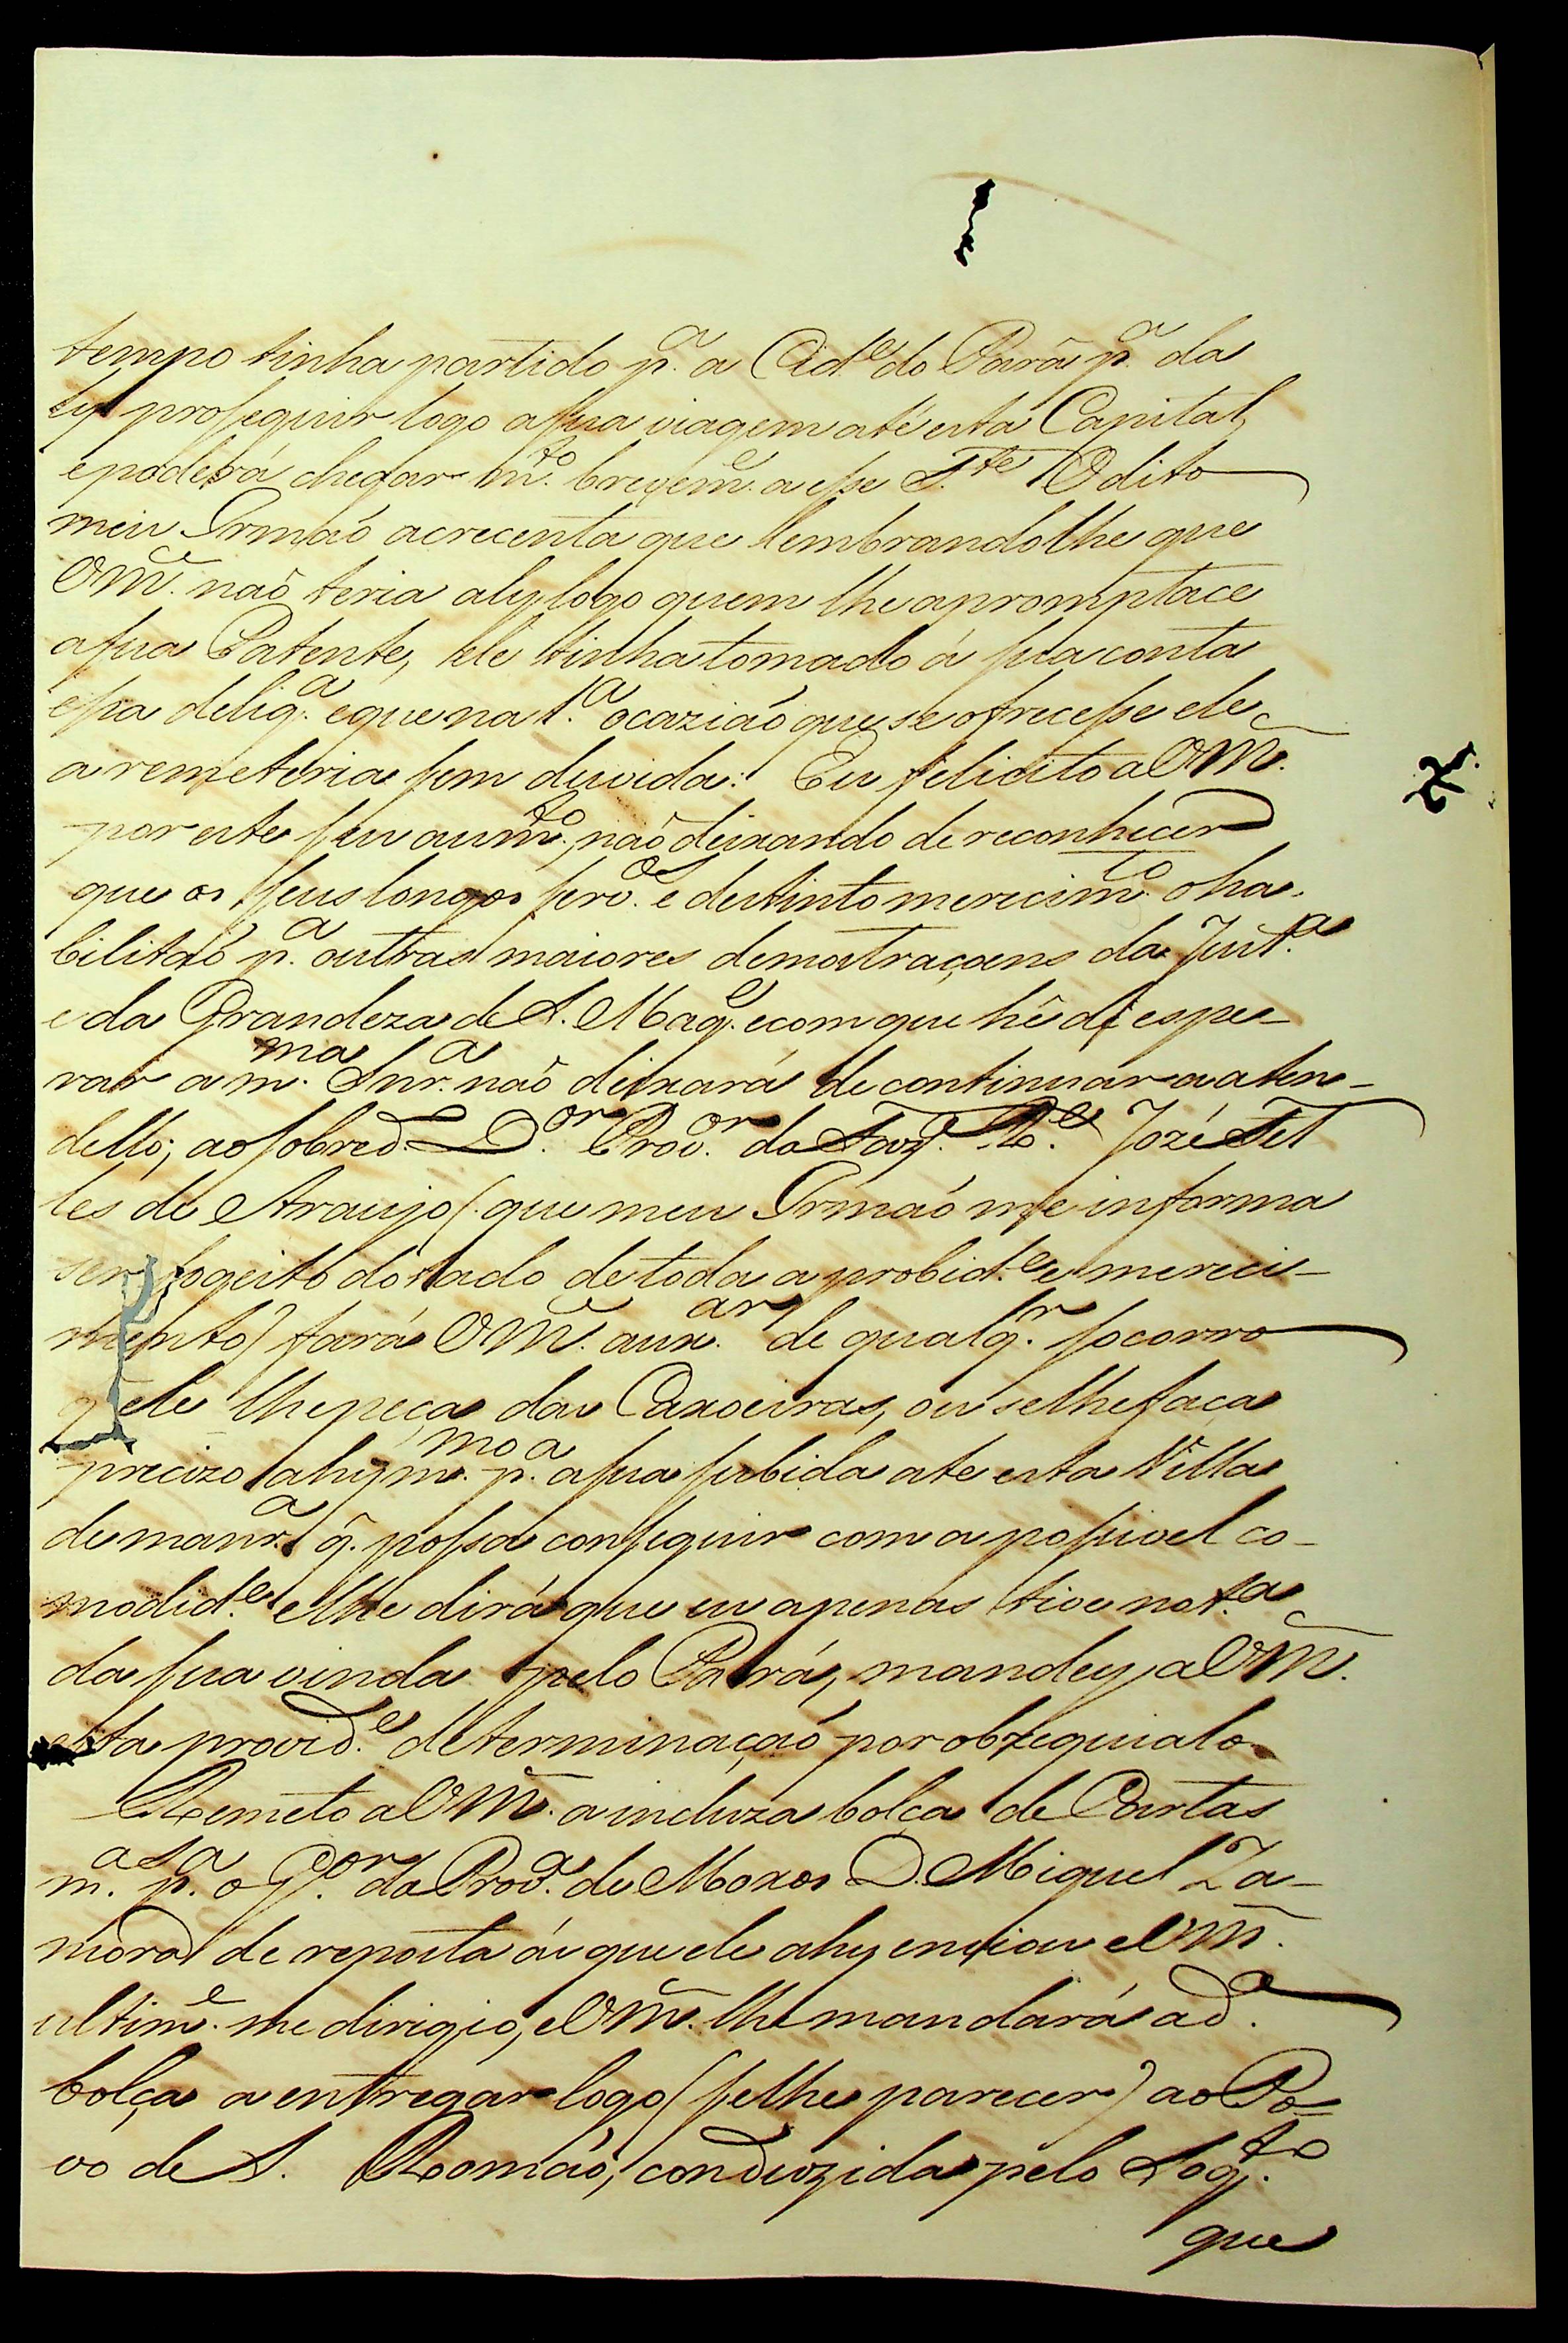 tempo tinha partido p.ª a Cid.e do Pará p.ª da
ly proseguir logo a sua viagem até esta Capital,
e poderá chegar m.to brevem.e a esse S.te O dito
meu Irmaõ acrecenta que lembrandolhe que
Vm.ce naõ teria aly logo quem lhe apromptace
a sua Patente, ele tinha tomado á sua conta
essa delig.ª e que na 1.ª ocaziaõ que se ofrecesse ele
a remeteria sem duvida: Eu felicito a Vm.ce
por este seu aum.to, naõ deixando de reconhecer
que os seus longos serv.os e destinto merecim.to o ha-
bilitaõ p.ª outras maiores demostraçoens da Just.ª
e da Grandeza de S. Mag.e e com que hê de espe-
rar a m.ma Snr.ª naõ deixará de continuar a aten-
dello; ao sobred.º D.or Prov.or da Faz.ª R.e Jozé Tel
les de Araujo (que meu Irmaõ me informa
ser sogeito dotado de toda a probid.e e mereci-
mento) fará Vm.ce aux.ar de qualq.r socorro
q̃ ele lhe peça das Caxoeiras, ou se lhe faça
precizo ahy m.mo p.ª a sua subida ate esta Villa
de man.rª q̃ possa conseguir com a possivel co-
modid.e e lhe dirá que eu apenas tive not.ª
da sua vinda pelo Pará, mandey a Vm.ce
esta provid.e determinaçaõ por obzequialo.
Remeto a Vm.ce a incluza bolça de Cartas
m.as p.ª o G.or da Prov.ª de Moxos D. Miguel Za-
mora de reposta ás que ele ahy enviou e Vm.ce
ultim.e me dirigio, e Vm.ce lhe mandará a d.ª
bolça a entregar logo (se lhe parecer) ao Po-
vo de S. Romaõ, conduzida pelo Sog.to
que